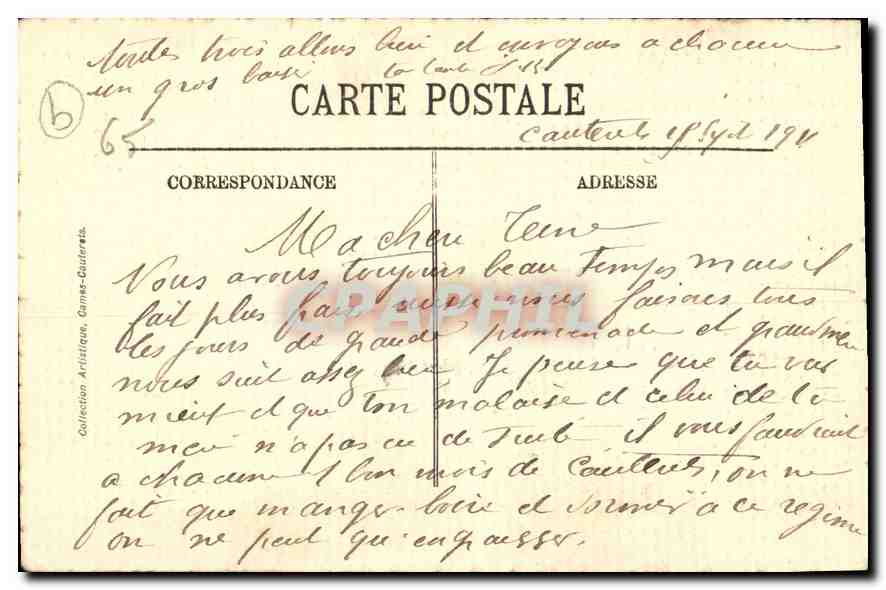 toutes trois allons bien et envoyons a chacune
un gros baiser ta tante
b
65
CARTE POSTALE
Cauterets 15 Sept 191
CORRESPONDANCE
ADRESSE
Ma chere
Nous avons toujours beau temps mais il
fait plus frais aussi nous faisons tous
les jours de grande promenade et grandmere
nous suit assez bien. Je pense que tu vas
mieux et que ton malaise et celui de ta
mere n'a pas eu de suite il vous faudrait
a chacune 1 bon mois de Cauterets, on ne
fait que manger-boire et dormir a ce regime
on ne peut qu'engraisser.
Collection Artistique, Cames-Cauterets.
CPAPHIL